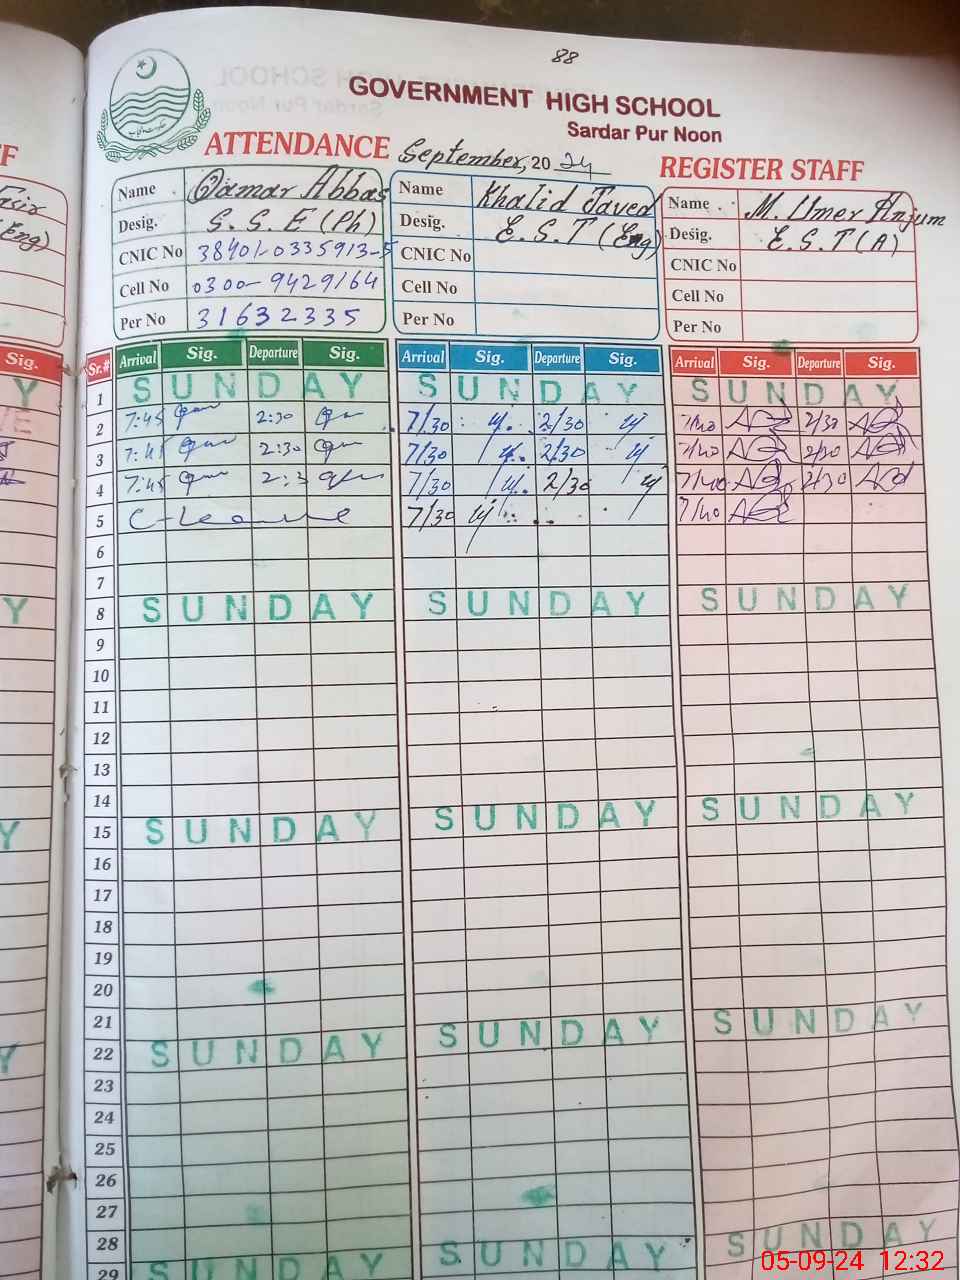 88
GOVERNMENT HIGH SCHOOL
Sardar Pur Noon
ATTENDANCE September, 2024 REGISTER STAFF
Name Qamar Abbas
Desig. S. S. E (Ph)
CNIC No 38401-0335913-5
Cell No 0300-9429164
Per No 31632335
Name Khalid Javed
Desig. E.S.T (Eng)
CNIC No
Cell No
Per No
Name M. Umer Anjum
Desig. E.S.T (A)
CNIC No
Cell No
Per No
Sig.
Sr.# Arrival Sig. Departure Sig. Arrival Sig. Departure Sig. Arrival Sig. Departure Sig.
1 SUNDAY SUNDAY SUNDAY
2 7:45 2:30 7/30 2/30 7/40 2/30
3 7:45 2:30 7/30 2/30 7/40 2/30
4 7:45 2:3 7/30 2/30 7/40 2/30
5 C-Leave 7/30 7/40
6
7
8 SUNDAY SUNDAY SUNDAY
9
10
11
12
13
14
15 SUNDAY SUNDAY SUNDAY
16
17
18
19
20
21
22 SUNDAY SUNDAY SUNDAY
23
24
25
26
27
28
29 SUNDAY SUNDAY SUNDAY
05-09-24 12:32